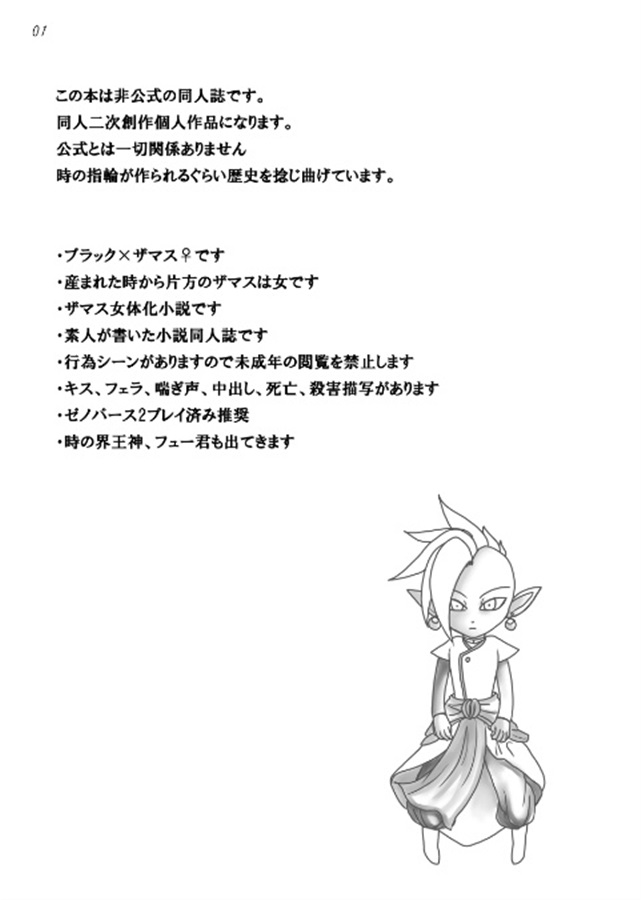 01
この本は非公式の同人誌です。
同人二次創作個人作品になります。
公式とは一切関係ありません
時の指輪が作られるぐらい歴史を捻じ曲げています。
・ブラック×ザマス♀です
・産まれた時から片方のザマスは女です
・ザマス女体化小説です
・素人が書いた小説同人誌です
・行為シーンがありますので未成年の閲覧を禁止します
・キス、フェラ、喘ぎ声、中出し、死亡、殺害描写があります
・ゼノバース2プレイ済み推奨
・時の界王神、フュー君も出てきます